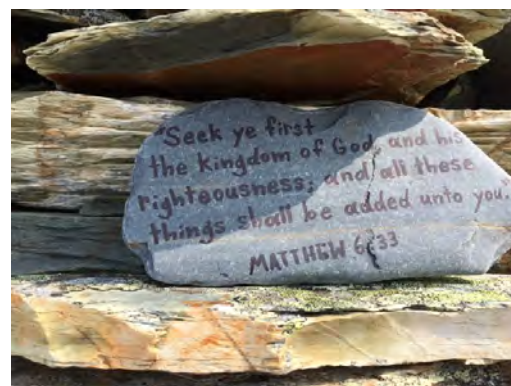 "Seek ye first
the kingdom of God, and his
righteousness; and all these
things shall be added unto you."
MATTHEW 6:33